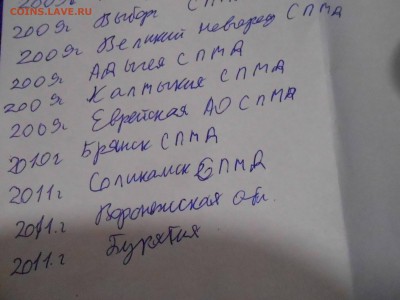 COINS.LAVE.RU
2009г Выборг СПМД
2009г Великий Новгород СПМД
2009г Адыгея СПМД
2009г Калмыкия СПМД
2009г Еврейская АО СПМД
2010г Брянск СПМД
2011г Соликамск СПМД
2011.г Воронежская обл.
2011.г Бурятия